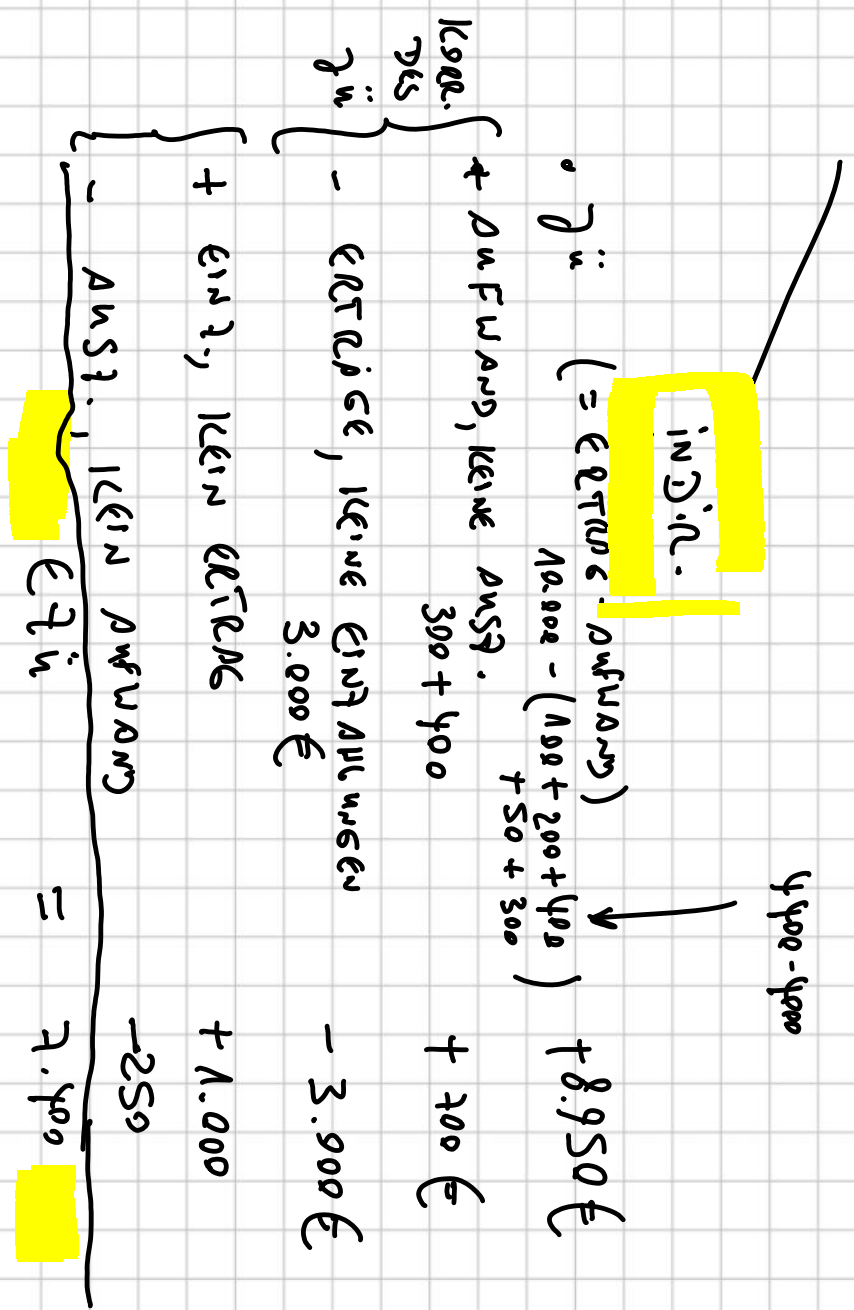 INDIR.
4400-4000
• JÜ (= ERTRAG - AUFWAND) +8.950€
10.000 - (100 + 200 + 400
+ 50 + 300)
KORR.
DES
JÜ
+ AUFWAND, KEINE AUSZ. + 700 €
300 + 400
- ERTRÄGE, KEINE EINZAHLUNGEN - 3.000€
3.000€
+ EINZ., KEIN ERTRAG + 1.000
- AUSZ., KEIN AUFWAND -250
EZÜ = 7.400